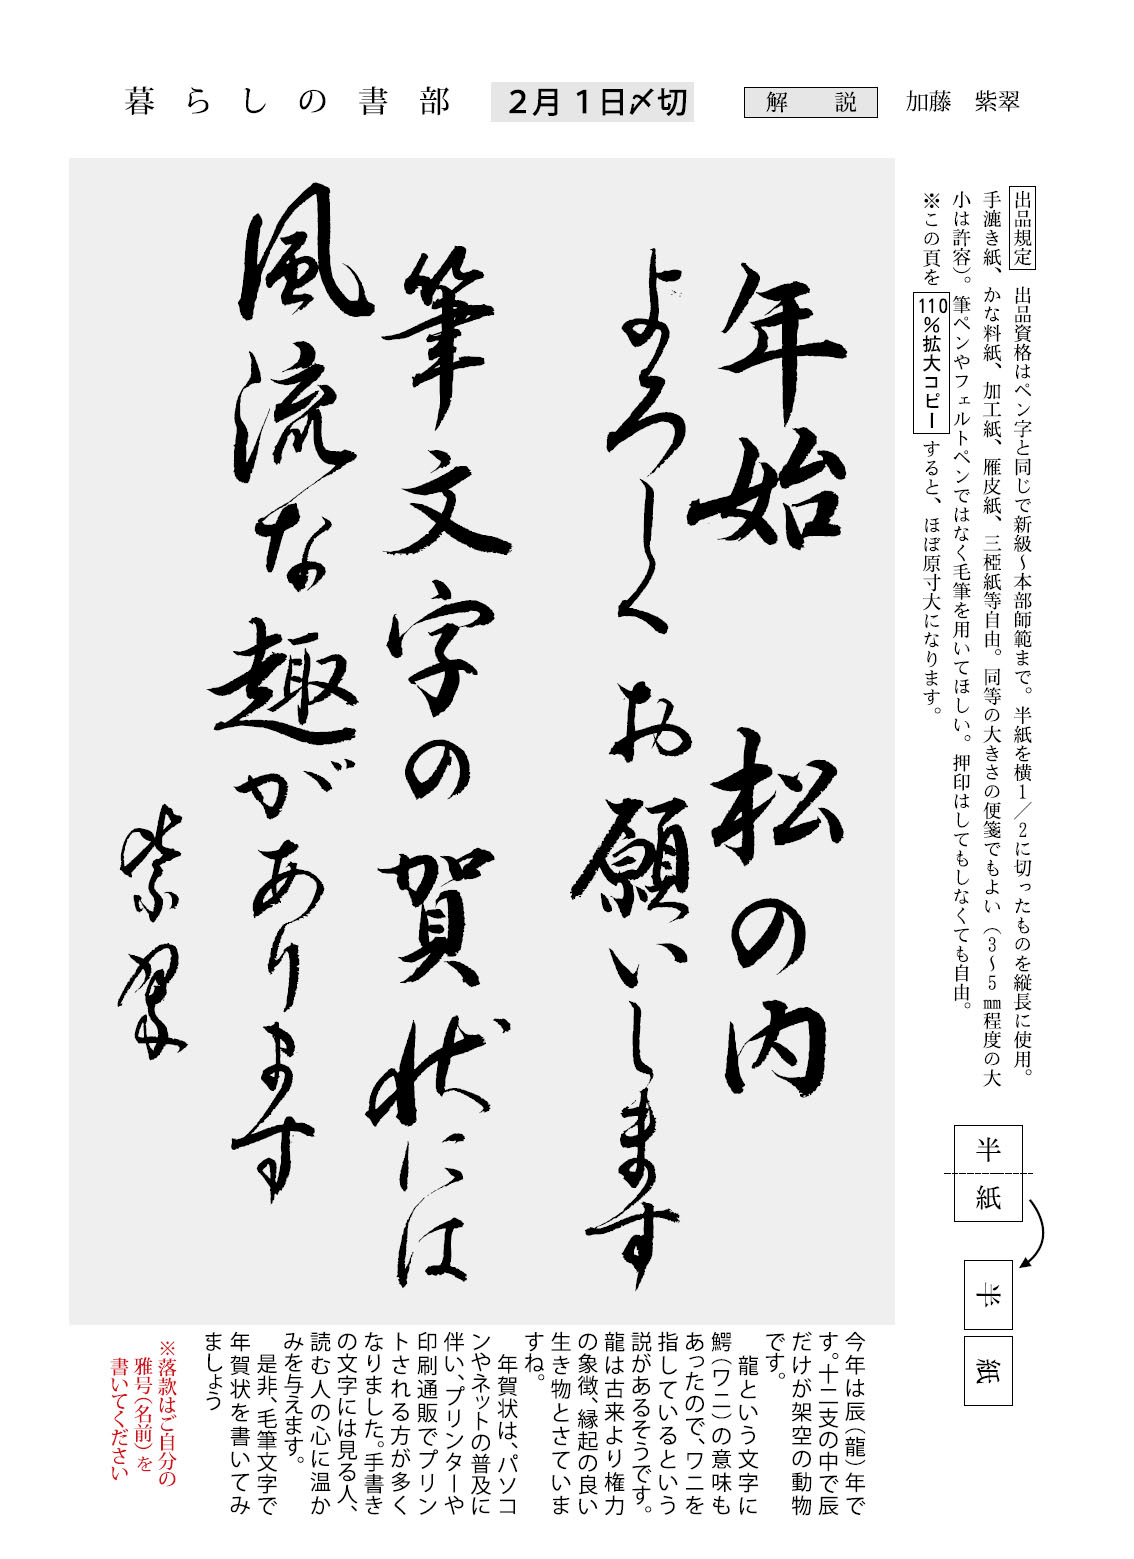 暮らしの書部
２月１日〆切
解説
加藤　紫翠
出品規定　出品資格はペン字と同じで新級～本部師範まで。半紙を横１／２に切ったものを縦長に使用。
手漉き紙、かな料紙、加工紙、雁皮紙、三椏紙等自由。同等の大きさの便箋でもよい（３～５㎜程度の大
小は許容）。筆ペンやフェルトペンではなく毛筆を用いてほしい。押印はしてもしなくても自由。
※この頁を110％拡大コピーすると、ほぼ原寸大になります。
半紙
半
紙
年始　松の内
よろしくお願いします
筆文字の賀状には
風流な趣があります
紫翠
今年は辰（龍）年で
す。十二支の中で辰
だけが架空の動物
です。
龍という文字に
鰐（ワニ）の意味も
あったので、ワニを
指しているという
説があるそうです。
龍は古来より権力
の象徴、縁起の良い
生き物とさていま
すね。
年賀状は、パソコ
ンやネットの普及に
伴い、プリンターや
印刷通販でプリン
トされる方が多く
なりました。手書き
の文字には見る人、
読む人の心に温か
みを与えます。
是非、毛筆文字で
年賀状を書いてみ
ましょう
※落款はご自分の
雅号（名前）を
書いてください